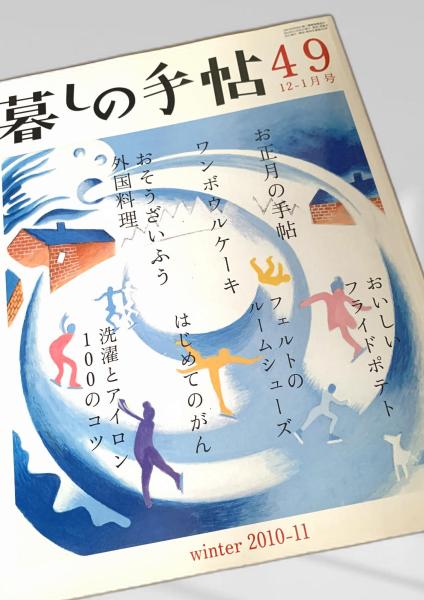 暮しの手帖 49
12-1月号
お正月の手帖
ワンボウルケーキ
おそうざいふう
外国料理
おいしい
フライドポテト
フェルトの
ルームシューズ
はじめてのがん
洗濯とアイロン
100のコツ
winter 2010-11